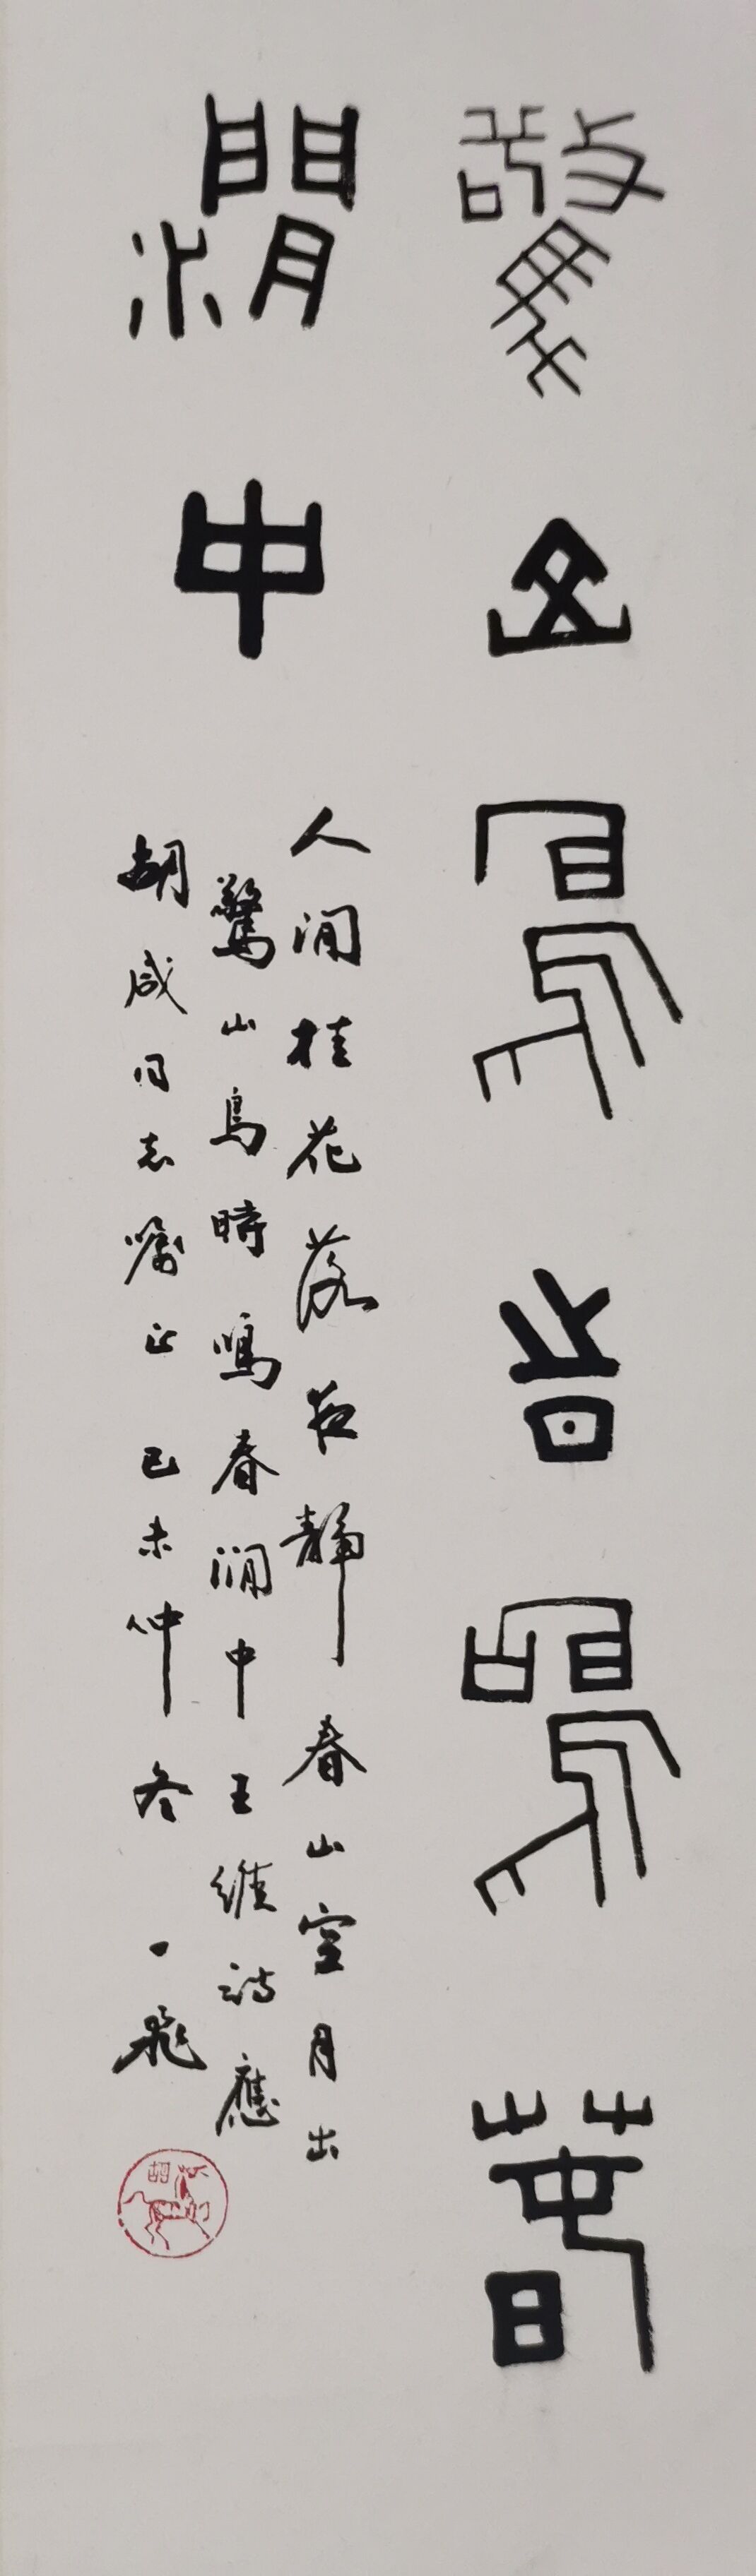 驚山鳥時鳴春
澗中
人閒桂花落夜静春山空月出
驚山鳥時鳴春澗中王維詩應
胡咸同志嘱正 己未仲冬 一飛